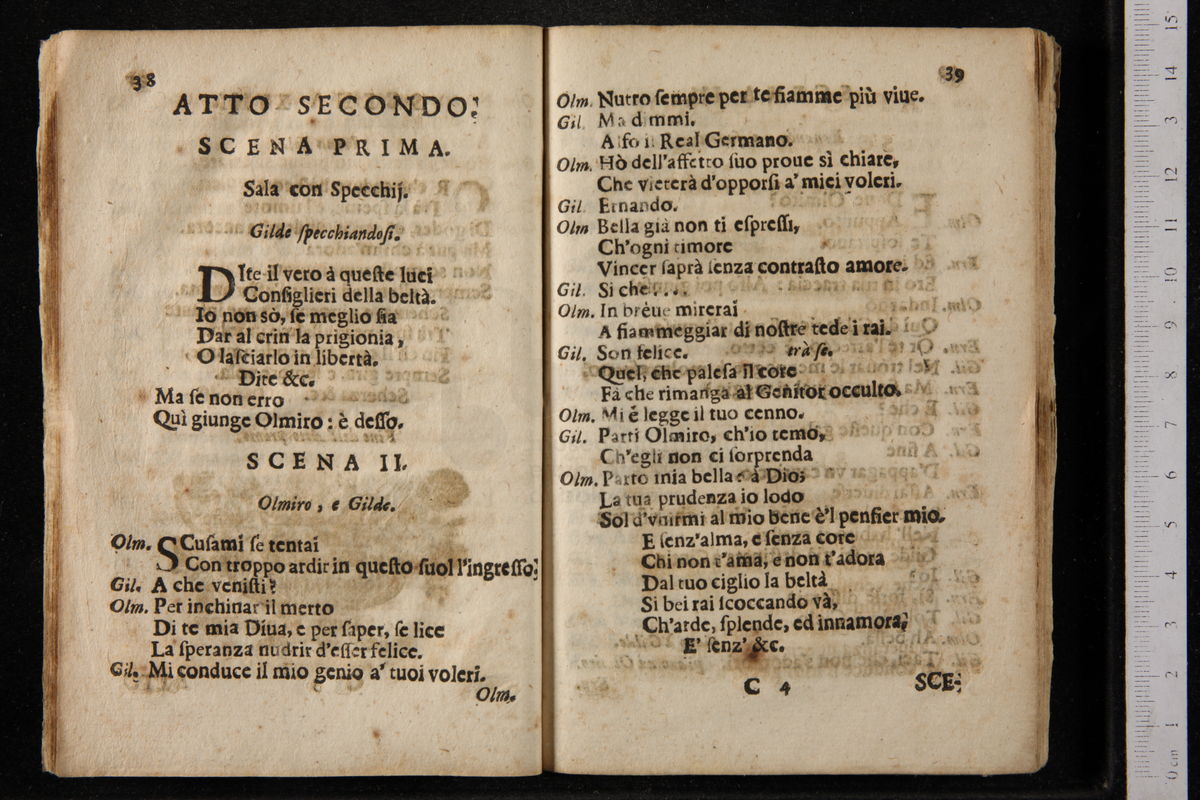 38
ATTO SECONDO.
SCENA PRIMA.
Sala con Specchij.
Gilde specchiandosi.
DIte il vero à queſte luci
Conſiglieri della beltà.
Io non sò, ſe meglio ſia
Dar al crin la prigionia,
O laſciarlo in libertà.
Dite &c.
Ma ſe non erro
Quì giunge Olmiro: è deſſo.
SCENA II.
Olmiro, e Gilde.
Olm. SCuſami ſe tentai
Con troppo ardir in queſto ſuol l'ingreſſo.
Gil. A che veniſti?
Olm. Per inchinar il merto
Di te mia Diua, e per ſaper, ſe lice
La ſperanza nudrir d'eſſer felice.
Gil. Mi conduce il mio genio a' tuoi voleri.
Olm.
39
Olm. Nutro ſempre per te fiamme più viue.
Gil. Ma dimmi.
Alfo il Real Germano.
Olm. Hò dell'affetto ſuo proue sì chiare,
Che vieterà d'opporſi a' miei voleri.
Gil. Ernando.
Olm Bella già non ti eſpreſſi,
Ch'ogni timore
Vincer ſaprà ſenza contraſto amore.
Gil. Si che....
Olm. In breue mirerai
A fiammeggiar di noſtre tede i rai.
Gil. Son felice. trà ſe.
Quel, che paleſa il core
Fà che rimanga al Genitor occulto.
Olm. Mi é legge il tuo cenno.
Gil. Parti Olmiro, ch'io temo,
Ch'egli non ci ſorprenda
Olm. Parto mia bella: à Dio;
La tua prudenza io lodo
Sol d'vnirmi al mio bene è'l penſier mio.
E ſenz'alma, e ſenza core
Chi non t'ama, e non t'adora
Dal tuo ciglio la beltà
Si bei rai ſcoccando và,
Ch'arde, ſplende, ed innamora.
E' ſenz' &c.
C 4
SCE-